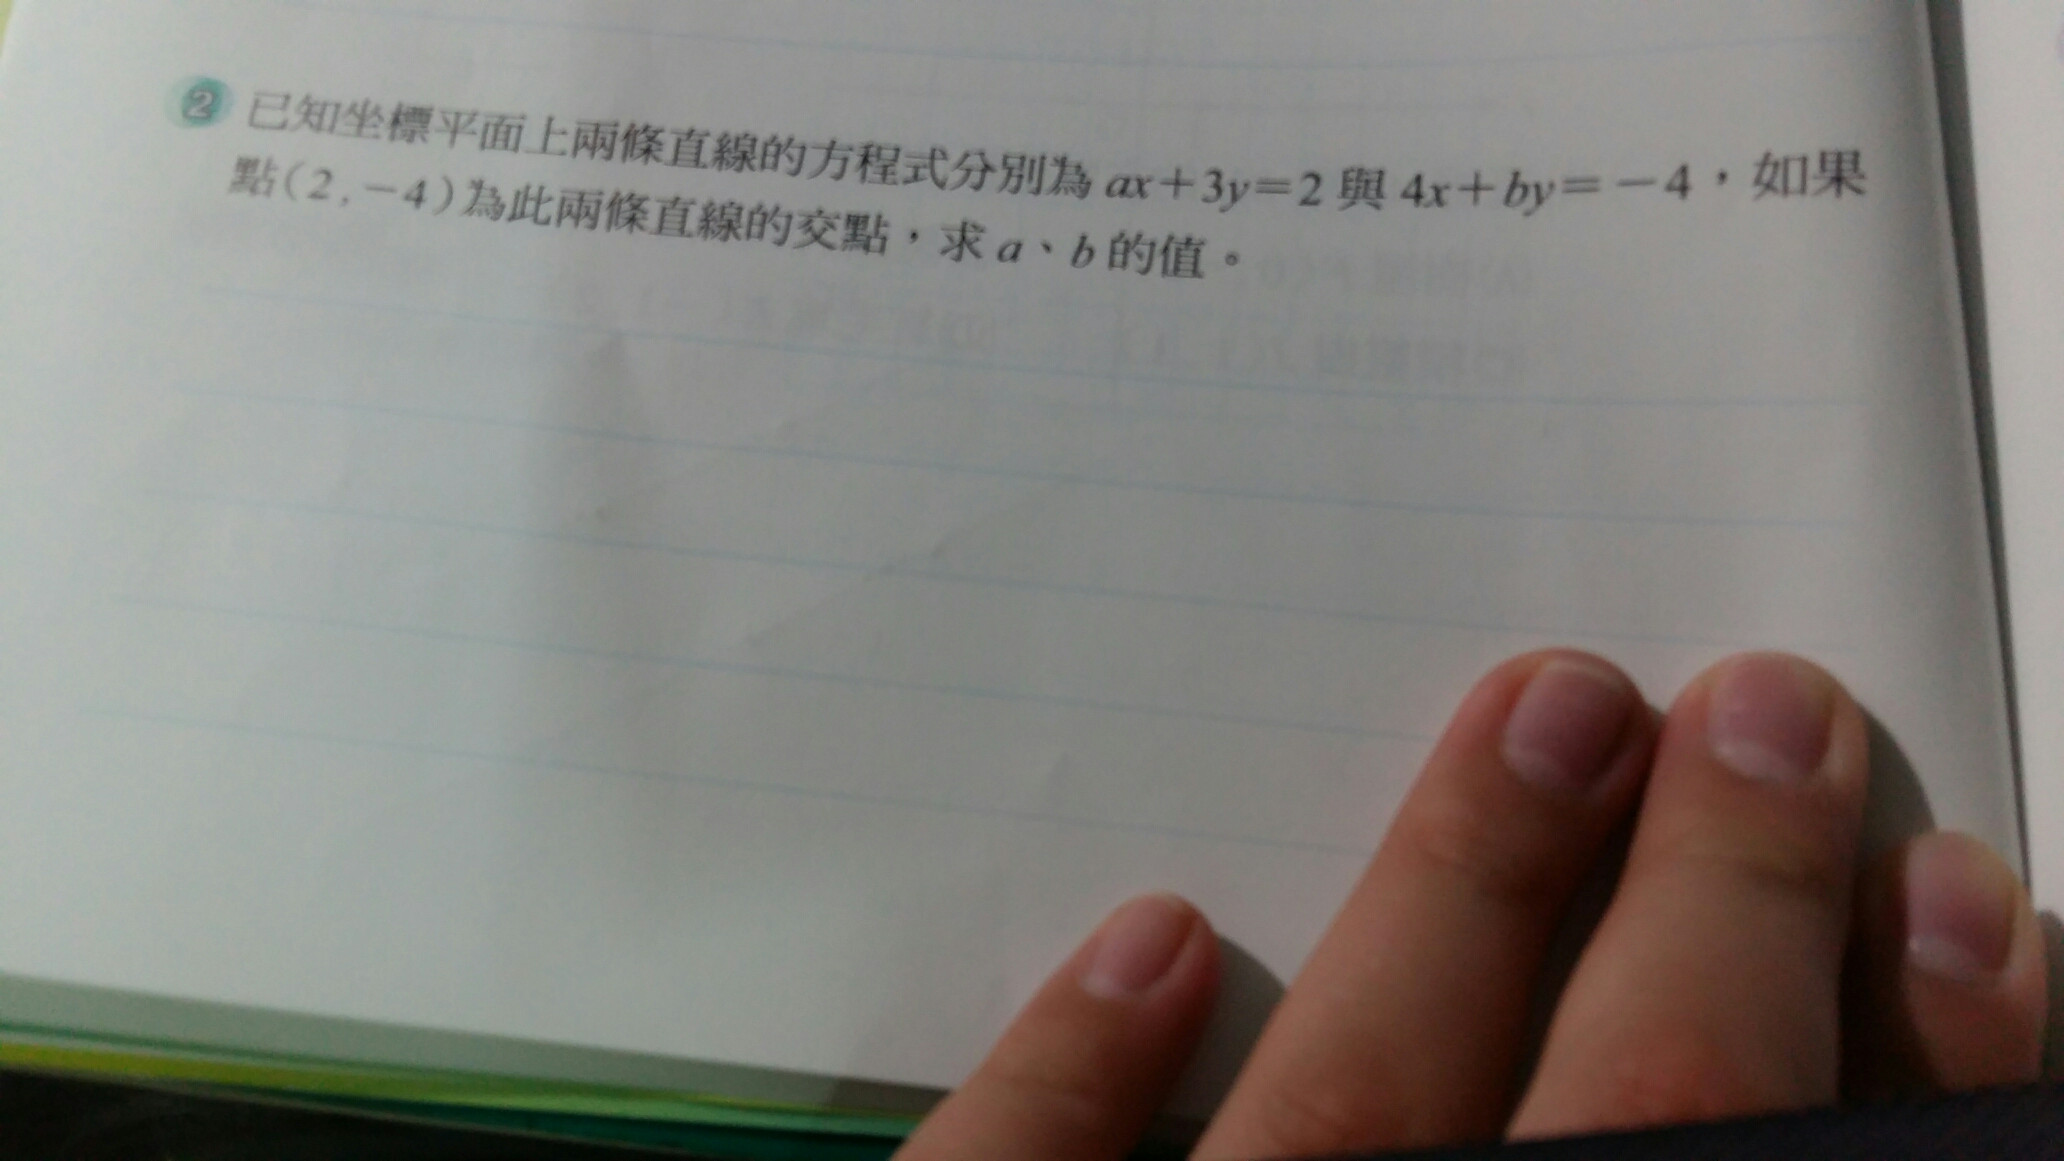 2 已知坐標平面上兩條直線的方程式分別為 ax+3y=2 與 4x+by=-4，如果
點(2,-4)為此兩條直線的交點，求 a、b 的值。